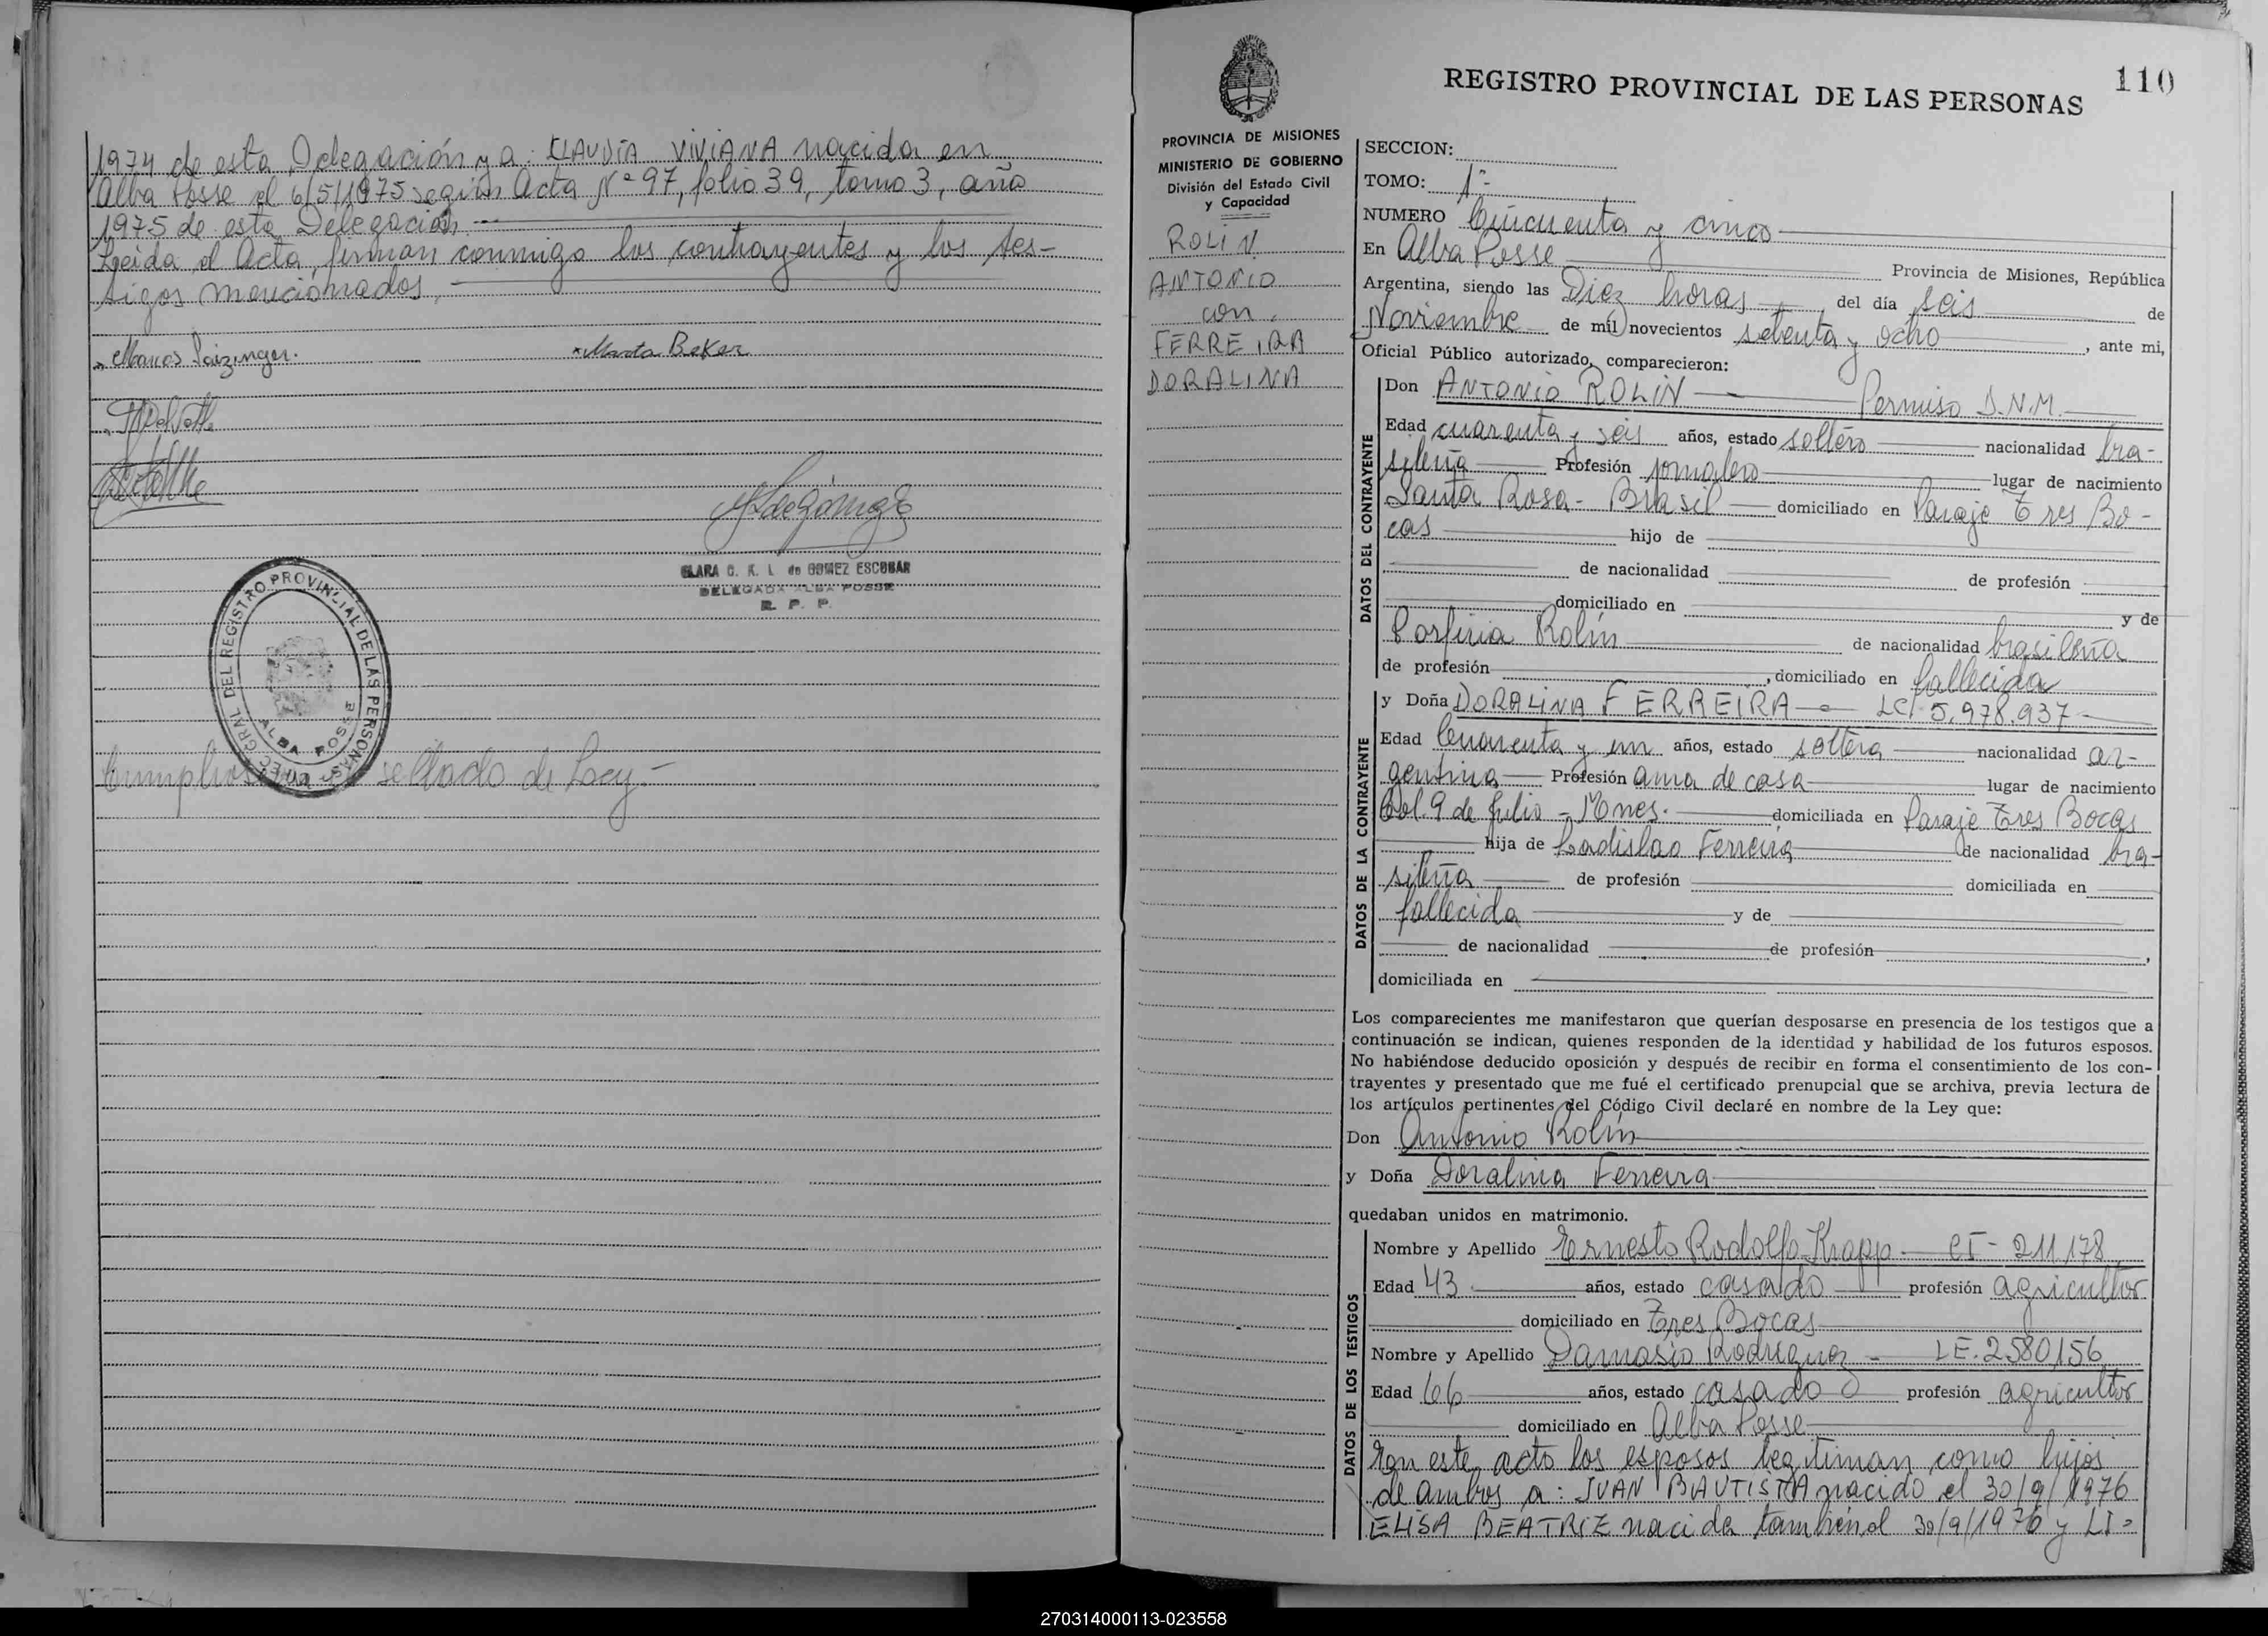 1974 de esta Delegación y a: CLAUDIA VIVIANA nacida en
Alba Posse el 6/5/1975 según Acta Nº 97, folio 39, tomo 3, año
1975 de esta Delegación.
Leida el Acta, firman conmigo los contrayentes y los tes-
tigos mencionados,
Marta Beker
CLARA C. K. L. de GOMEZ ESCOBAR
DELEGADA ALBA POSSE
R. P. P.
DEL REGISTRO PROVINCIAL DE LAS PERSONAS
ALBA POSSE
sellado de Ley.-
110
REGISTRO PROVINCIAL DE LAS PERSONAS
PROVINCIA DE MISIONES
MINISTERIO DE GOBIERNO
División del Estado Civil
y Capacidad
ROLIN
ANTONIO
con
FERREIRA
DORALINA
SECCION:
TOMO: 1º
NUMERO Cincuenta y cinco
En Alba Posse Provincia de Misiones, República
Argentina, siendo las Diez horas del día seis de
Noviembre de mil novecientos setenta y ocho, ante mi,
Oficial Público autorizado, comparecieron:
DATOS DEL CONTRAYENTE
Don ANTONIO ROLIN Permiso D.N.M.
Edad cuarenta y seis años, estado soltero nacionalidad bra-
sileña Profesión jornalero lugar de nacimiento
Santa Rosa - Brasil domiciliado en Paraje Tres Bo-
cas hijo de
de nacionalidad de profesión
domiciliado en y de
Porfiria Rolín de nacionalidad brasileña
de profesión , domiciliado en fallecida
DATOS DE LA CONTRAYENTE
y Doña DORALINA FERREIRA LC. 5.978.937
Edad Cuarenta y un años, estado soltera nacionalidad ar-
gentina Profesión ama de casa lugar de nacimiento
Col. 9 de Julio - Mnes. domiciliada en Paraje Tres Bocas
hija de Ladislao Ferreira de nacionalidad bra-
sileña de profesión domiciliada en
fallecida y de
de nacionalidad de profesión ,
domiciliada en
Los comparecientes me manifestaron que querían desposarse en presencia de los testigos que a
continuación se indican, quienes responden de la identidad y habilidad de los futuros esposos.
No habiéndose deducido oposición y después de recibir en forma el consentimiento de los con-
trayentes y presentado que me fué el certificado prenupcial que se archiva, previa lectura de
los artículos pertinentes del Código Civil declaré en nombre de la Ley que:
Don Antonio Rolín
y Doña Doralina Ferreira
quedaban unidos en matrimonio.
DATOS DE LOS TESTIGOS
Nombre y Apellido Ernesto Rodolfo Krapp CI - 211.178
Edad 43 años, estado casado profesión agricultor
domiciliado en Tres Bocas
Nombre y Apellido Damasio Rodriguez - LE. 2580156
Edad 66 años, estado casado profesión agricultor
domiciliado en Alba Posse
En este acto los esposos legitiman como hijos
de ambos a: JUAN BAUTISTA nacido el 30/9/1976
ELISA BEATRIZ nacida también el 30/9/1976 y LI=
270314000113-023558